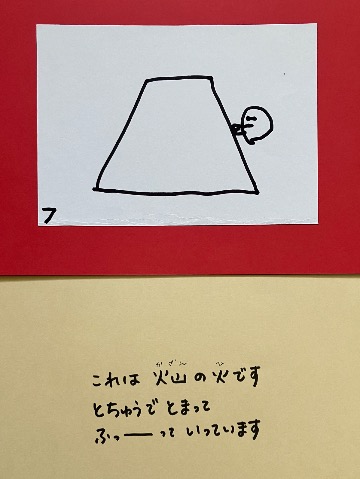 フ
これは 火山の火です
とちゅうで とまって
ふっーって いっています